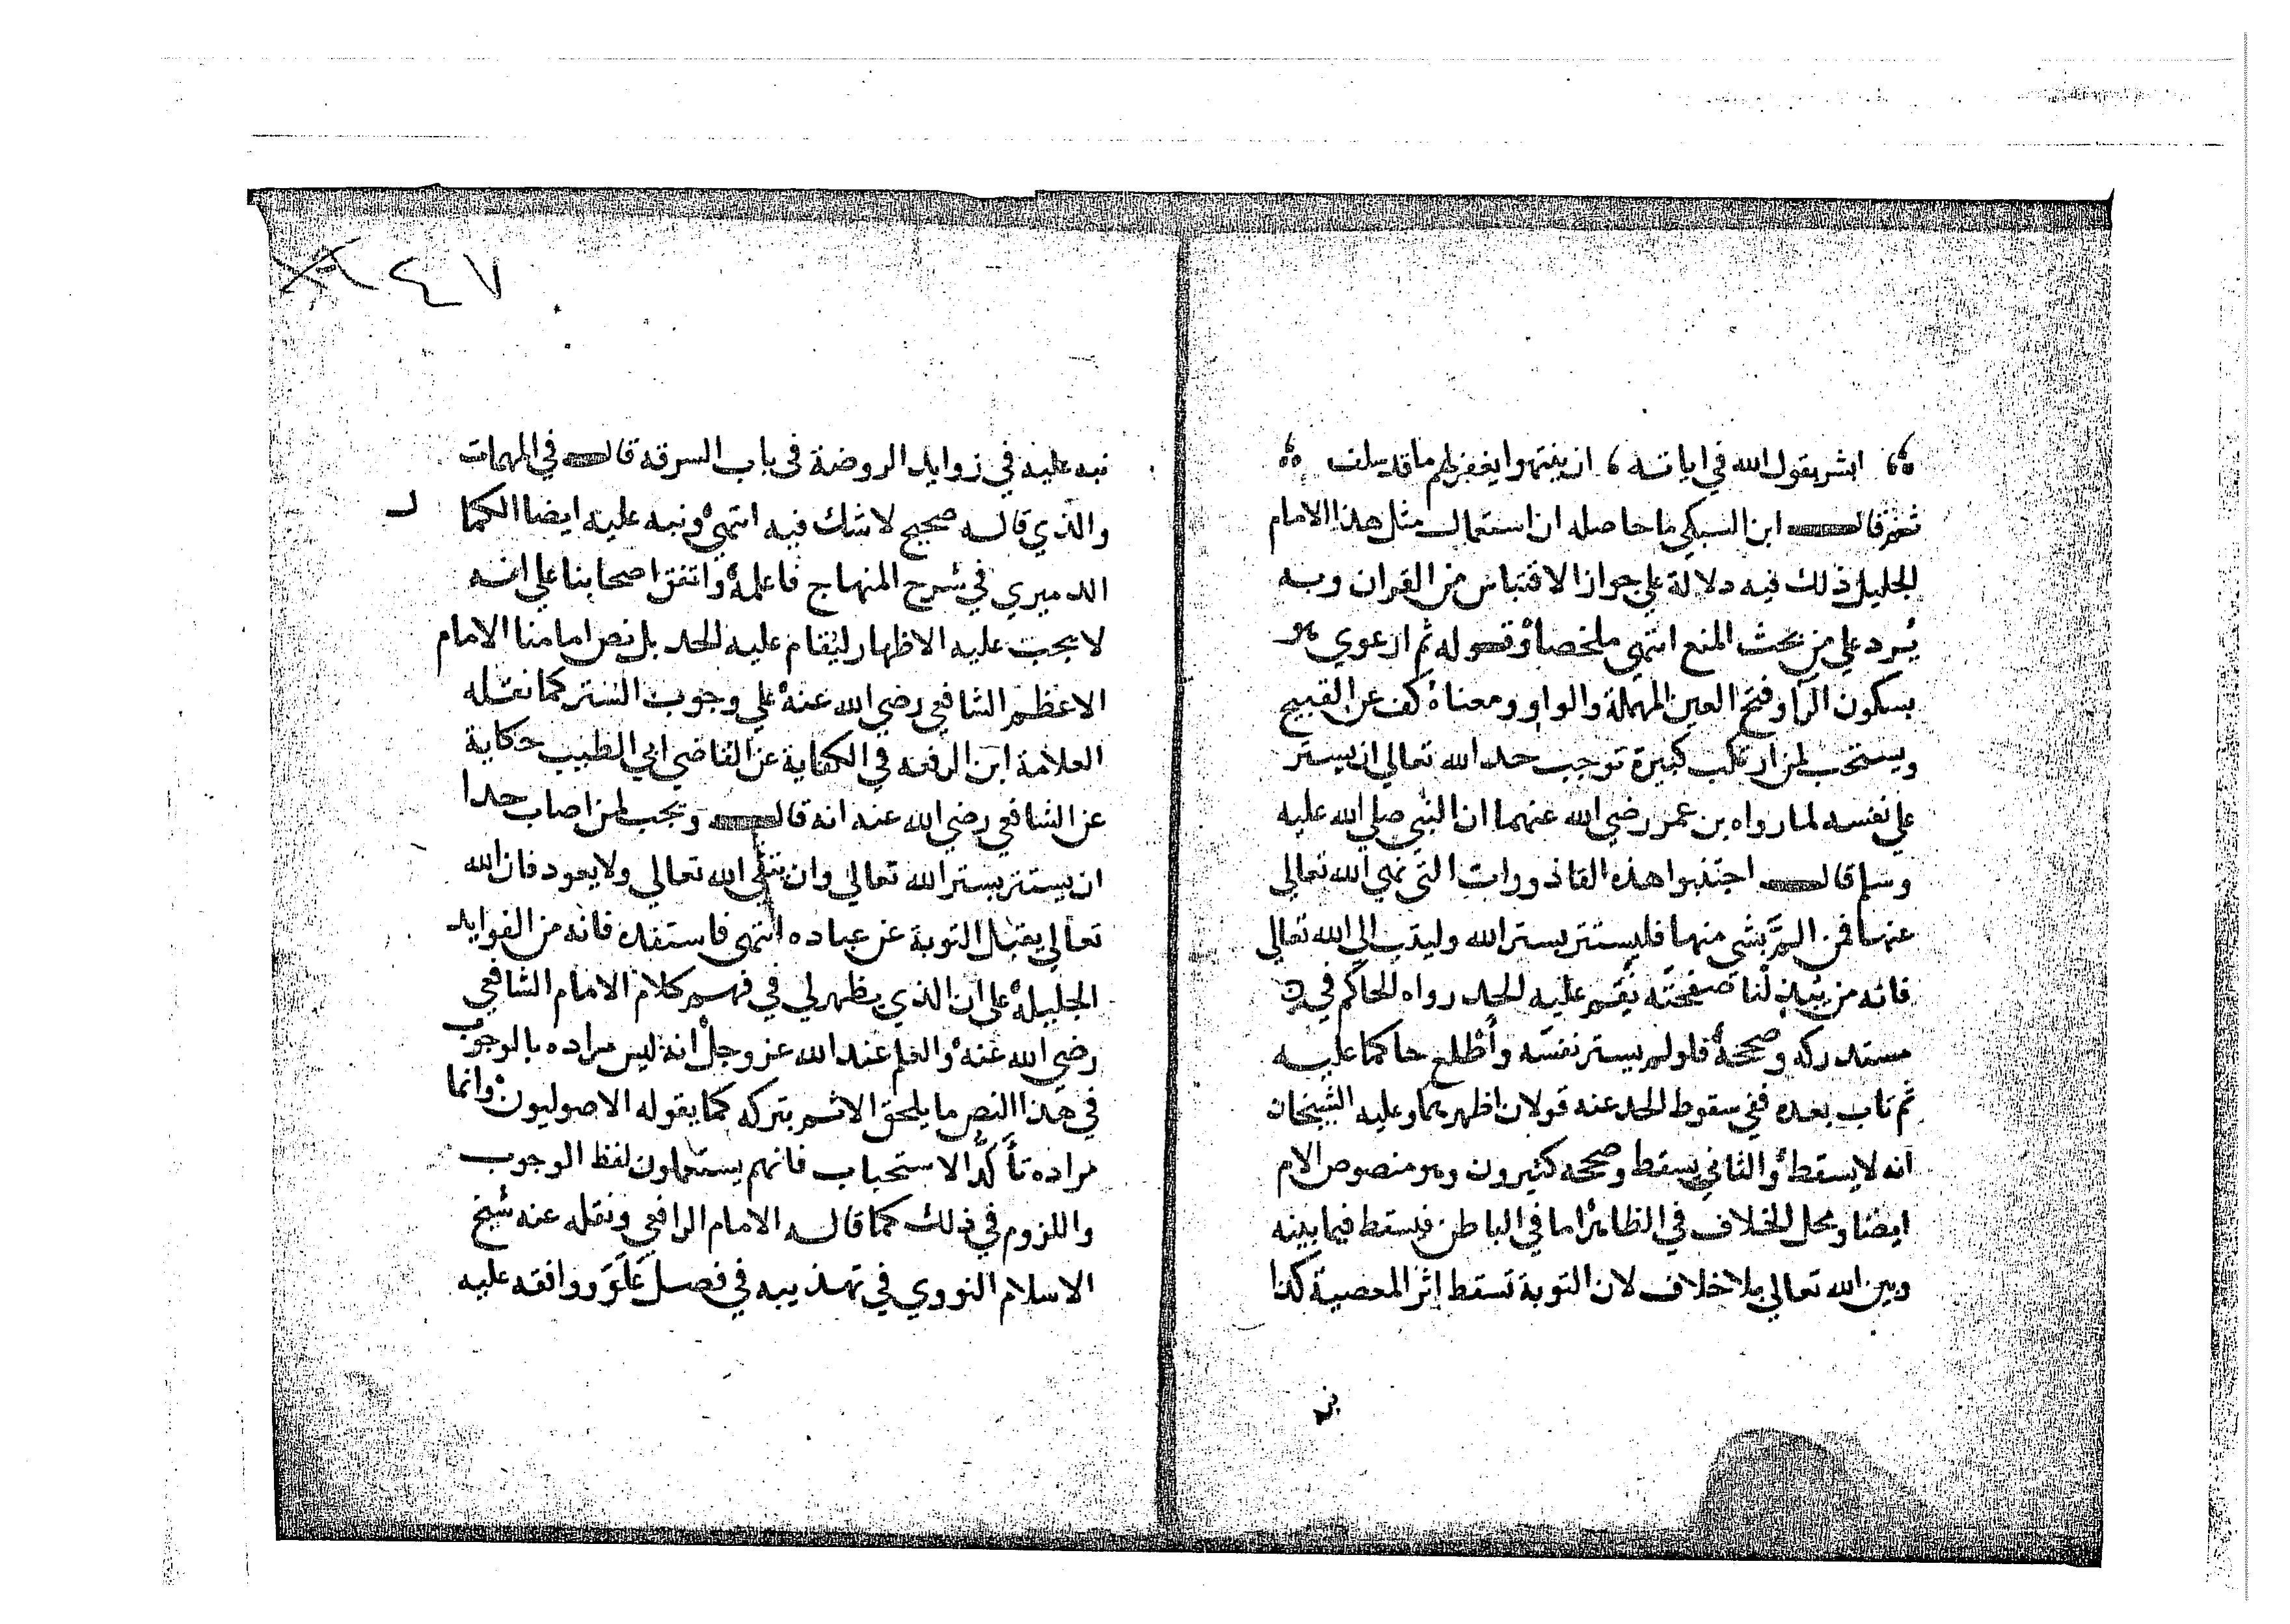 ابشر بقول الله في اياته ، ان ينتهوا يغفر لهم ما قد سلف
ثم قال ابن السبكي ما حاصله ان استعمال مثل هذا الامام
الجليل ذلك فيه دلالة علي جواز الاقتباس من القران وبه
يُرد علي من بحث المنع انتهي ملخصا وقوله ثم ارعوي هو
بسكون الرا وفتح العين المهملة والواو ومعناه كف عن القبيح
ويستحب لمن ارتكب كبيرة توجب حد الله تعالي ان يستر
علي نفسه لما رواه بن عمر رضي الله عنهما ان النبي صلي الله عليه
وسلم قال اجتنبوا هذه القاذورات التي نهي الله تعالي
عنها فمن المَّ بشي منها فليستتر بستر الله وليتب الي الله تعالي
فانه من يُبد لنا صفحته نُقم عليه الحد رواه الحاكم في
مستدركه وصححه فلو لم يستر نفسه وأطلع حاكما عليه
ثم تاب بعده ففي سقوط الحد عنه قولان اظهرهما وعليه الشيخان
انه لا يسقط والثاني يسقط وصححه كثيرون وهو منصوص الام
ايضا ومحل الخلاف في الظاهر اما في الباطن فيسقط فيما بينه
وبين الله تعالي بلا خلاف لان التوبة تسقط اثر المعصية كذا
٤٧
نبه عليه في زوايد الروضة في باب السرقه قال في المهمات
والذي قاله صحيح لا شك فيه انتهي ونبه عليه ايضا الكمال
الدميري في شرح المنهاج فاعلمه واتفق اصحابنا علي انه
لا يجب عليه الاظهار ليُقام عليه الحد بل نص امامنا الامام
الاعظم الشافعي رضي الله عنه علي وجوب التستر كما نقله
العلامة ابن الرفعه في الكفاية عن القاضي ابي الطيب حكاية
عن الشافعي رضي الله عنه انه قال ويجب لمن اصاب حدا
ان يستتر بستر الله تعالي وان يتقي الله تعالي ولا يعود فان الله
تعالي يقبل التوبة عن عباده انتهي فاستفده فانه من الفوايد
الجليلة علي ان الذي يظهر لي في فهم كلام الامام الشافعي
رضي الله عنه والعلم عند الله عز وجل انه ليس مراده بالوجوب
في هذا النص ما يلحق الاثم بتركه كما يقوله الاصوليون وانما
مراده تأكّد الاستحباب فانهم يستعملون لفظ الوجوب
واللزوم في ذلك كما قاله الامام الرافعي ونقله عنه شيخ
الاسلام النووي في تهذيبه في فصل عَلَوَ ووافقه عليه